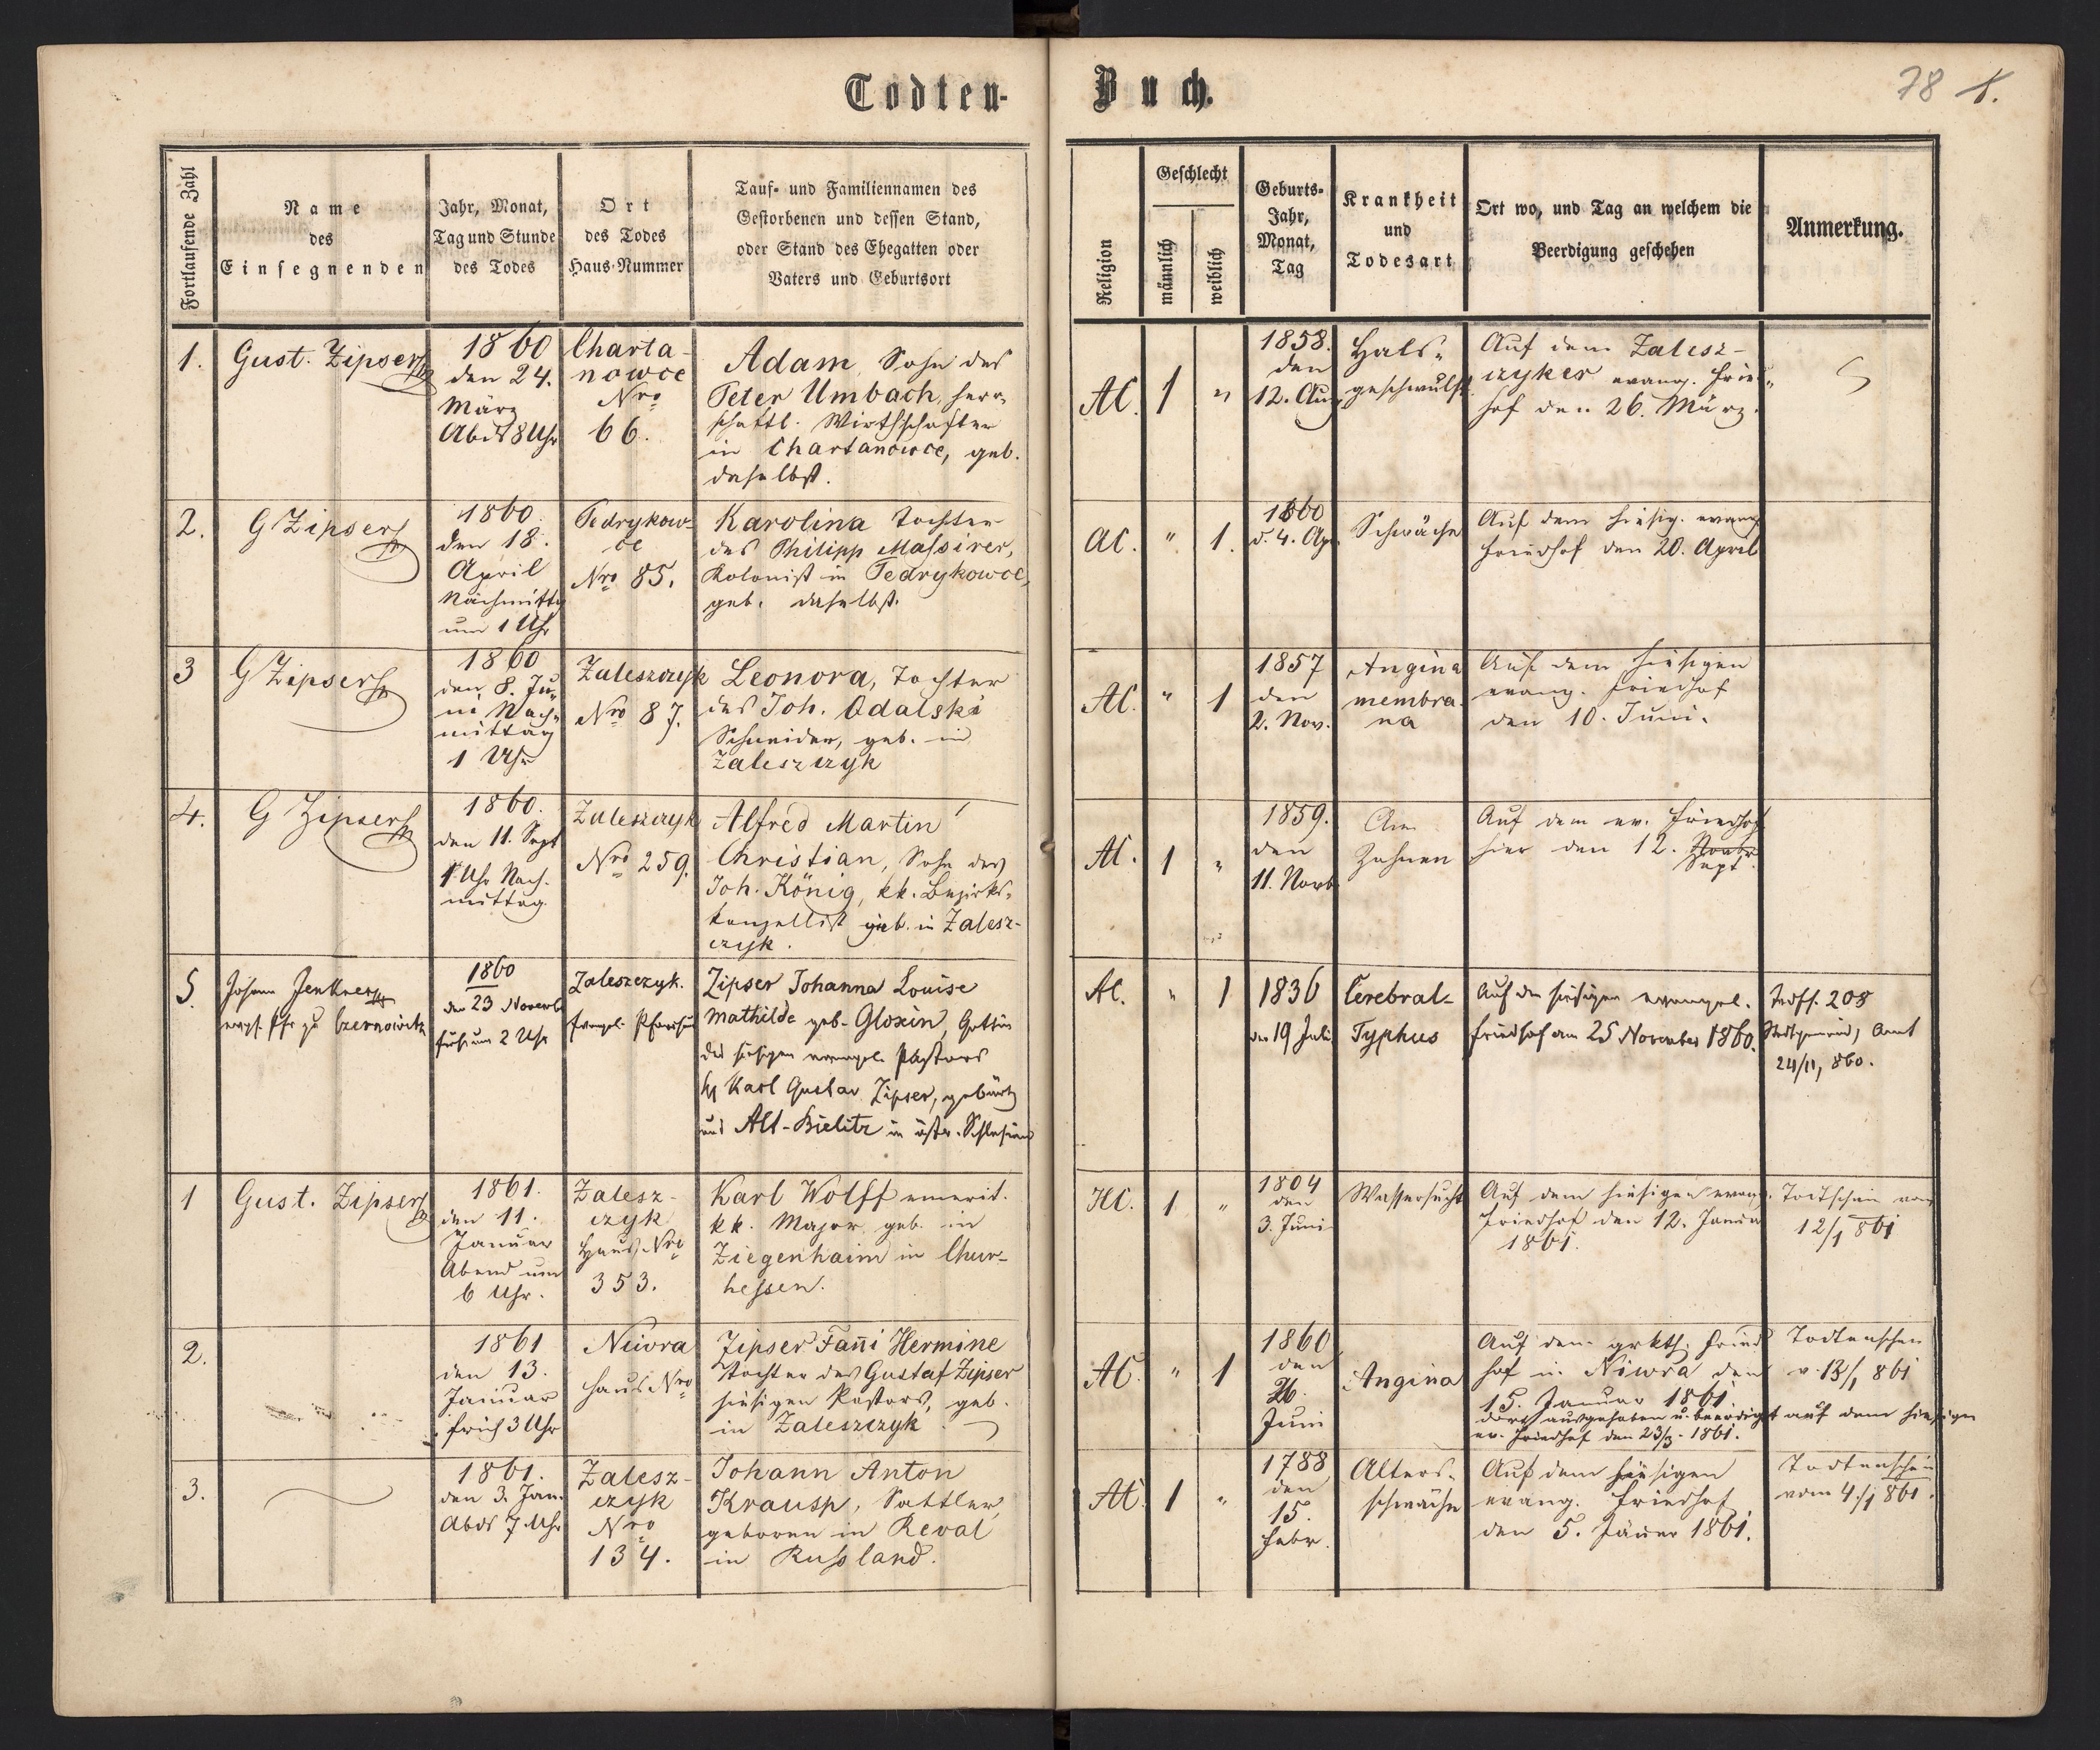 Todten-
Buch.
78 1.
Fortlaufende Zahl
Name
des
Einsegnenden
Jahr, Monat,
Tag und Stunde
des Todes
Ort
des Todes
Haus-Nummer
Tauf- und Familiennamen des
Gestorbenen und dessen Stand,
oder Stand des Ehegatten oder
Vaters und Geburtsort
Religion
Geschlecht
männlich
weiblich
Geburts-
Jahr,
Monat,
Tag
Krankheit
und
Todesart
Ort wo, und Tag an welchem die
Beerdigung geschehen
Anmerkung.
1.
Gust. Zipser
1860
den 24.
März
Abds 8 Uhr
Charta-
nowce
Nro
66.
Adam, Sohn des
Peter Umbach, herr-
schaftl. Wirthschafter
in Chartanowce, geb.
daselbst.
AC.
1
"
1858.
den
12. Aug
Hals-
geschwulst
Auf dem Zalesz-
czyker evang. Fried-
hof den 26. März.
2.
G Zipser
1860
den 18.
April
Nachmittg
um 1 Uhr
Tedrykow-
ce
Nro 85.
Karolina Tochter
des Philipp Massirer,
Kolonist in Tedrykowce,
geb. daselbst.
AC.
"
1.
1860
d. 4. Apr.
Schwäche
Auf dem hiesig. evang
Friedhof den 20. April
3
G Zipser
1860
den 8. Ju-
ni Nach-
mittag
1 Uhr
Zaleszczyk
Nro 87.
Leonora, Tochter
des Joh. Odalski
Schneider, geb. in
Zaleszczyk
AC.
"
1
1857
den
2. Nov.
Angina
membra-
na
Auf dem hiesigen
evang. Friedhof
den 10. Juni.
4.
G Zipser
1860.
den 11. Sept
1 Uhr Nach-
mittag
Zaleszczyk
Nro 259.
Alfred Martin
Christian, Sohn des
Joh. König, kk. Bezirks-
kanzellist geb. in Zalesz-
czyk.
AC.
1
"
1859.
den
11. Novb
Am
Zahnen
Auf dem ev. Friedhof
hier den 12. Novbr
Sept.
5.
Johann Jenkner
evngl. Pfr zu Czernowitz
1860
den 23 Novemb
früh um 2 Uhr
Zaleszczyk.
Evangel. Pfarrhaus
Zipser Johanna Louise
Mathilde geb. Gloxin, Gattin
des hiesigen evangel. Pastors
H Karl Gustav Zipser, gebürtig
aus Alt-Bielitz in östr. Schlesien
AC.
"
1
1836
den 19 Juli
Cerebral-
Typhus
Auf dem hiesigen evangel.
Friedhof am 25 November 1860.
Todtsch. 208
Amt
24/11, 860.
1
Gust. Zipser
1861.
den 11.
Januar
Abend um
6 Uhr.
Zalesz-
czyk
Haus-Nro
353.
Karl Wolff emerit.
kk. Major, geb. in
Ziegenhaim in Chur-
hessen.
HC.
1
"
1804
den
3. Juni
Wassersucht
Auf dem hiesigen evang.
Friedhof den 12. Januar
1861.
Todtschein vom
12/1 861
2.
1861
den 13.
Januar
früh 3 Uhr
Niwra
Haus Nro
Zipser Fani Hermine
Tochter des Gustaf Zipser
hiesigen Pastors, geb.
in Zaleszczyk
AC.
"
1
1860
den
26.
Juni
Angina
Auf dem grkth. Fried
hof in Niwra den
15. Januar 1861.
dort ausgehoben u. beerdigt auf dem hiesigen
ev. Friedhof den 23/3. 1861.
Todtenschein
v. 13/1 861
3.
1861.
den 3. Jan.
Abds 7 Uhr
Zalesz-
czyk
Nro
134.
Johann Anton
Krausp, Sattler,
geboren in Reval
in Russland.
AC.
1
"
1788
den
15.
Febr.
Alters-
schwäche
Auf dem hiesigen
evang. Friedhof
den 5. Jäner 1861.
Todtenschein
vom 4./1 861.